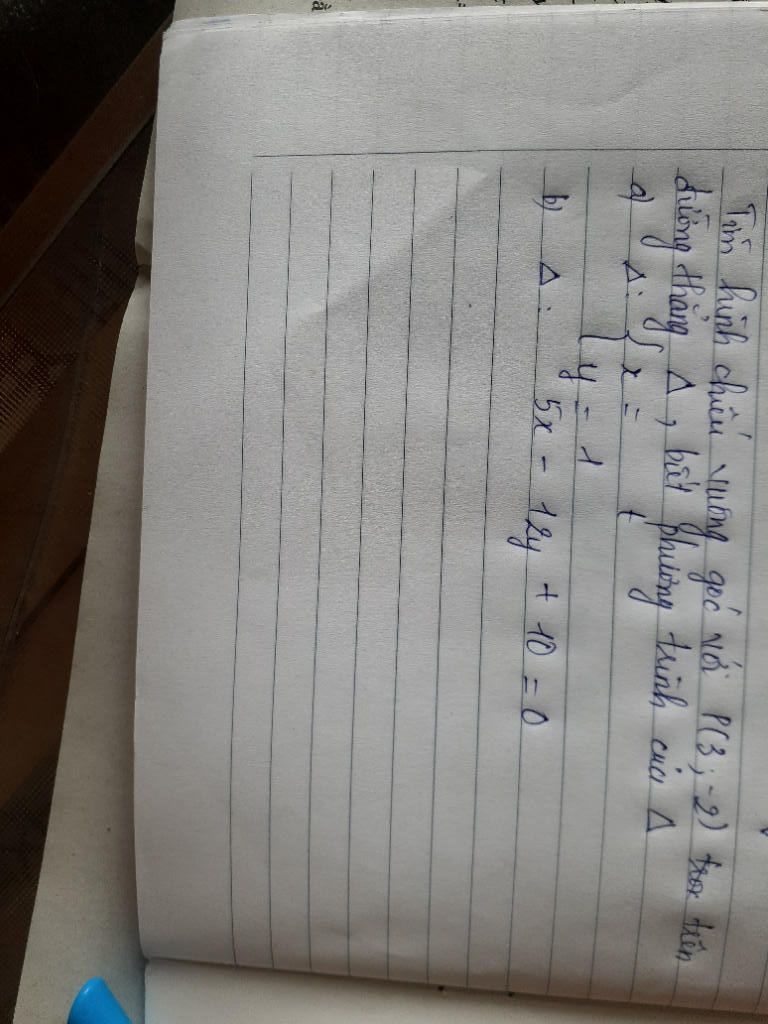 Tìm hình chiếu vuông góc với P(3; -2) trên
đường thẳng Δ, biết phương trình của Δ
a) Δ: { x = t
y = 1
b) Δ: 5x - 12y + 10 = 0